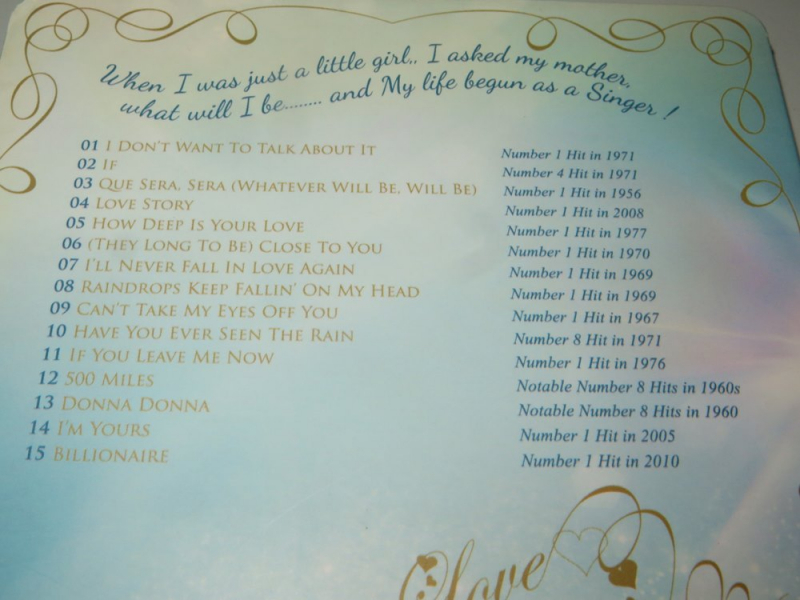 When I was just a little girl.. I asked my mother,
what will I be........ and My life begun as a Singer !
01 I Don't Want To Talk About It Number 1 Hit in 1971
02 If Number 4 Hit in 1971
03 Que Sera, Sera (Whatever Will Be, Will Be) Number 1 Hit in 1956
04 Love Story Number 1 Hit in 2008
05 How Deep Is Your Love Number 1 Hit in 1977
06 (They Long To Be) Close To You Number 1 Hit in 1970
07 I'll Never Fall In Love Again Number 1 Hit in 1969
08 Raindrops Keep Fallin' On My Head Number 1 Hit in 1969
09 Can't Take My Eyes Off You Number 1 Hit in 1967
10 Have You Ever Seen The Rain Number 8 Hit in 1971
11 If You Leave Me Now Number 1 Hit in 1976
12 500 Miles Notable Number 8 Hits in 1960s
13 Donna Donna Notable Number 8 Hits in 1960
14 I'm Yours Number 1 Hit in 2005
15 Billionaire Number 1 Hit in 2010
Love